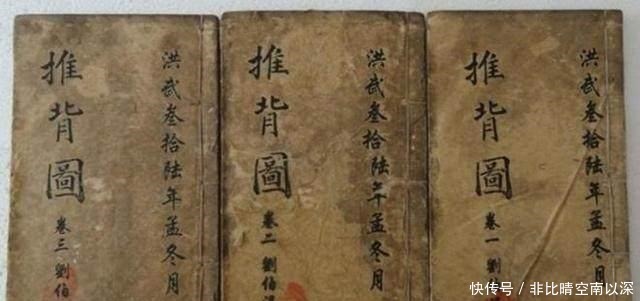 洪武叁拾陆年孟冬月
推背圖
卷一 劉
洪武叁拾陆年孟冬月
推背圖
卷二 劉伯温
洪武叁拾陆年孟冬月
推背圖
卷三 劉伯
快传号 / 非比晴空南以深